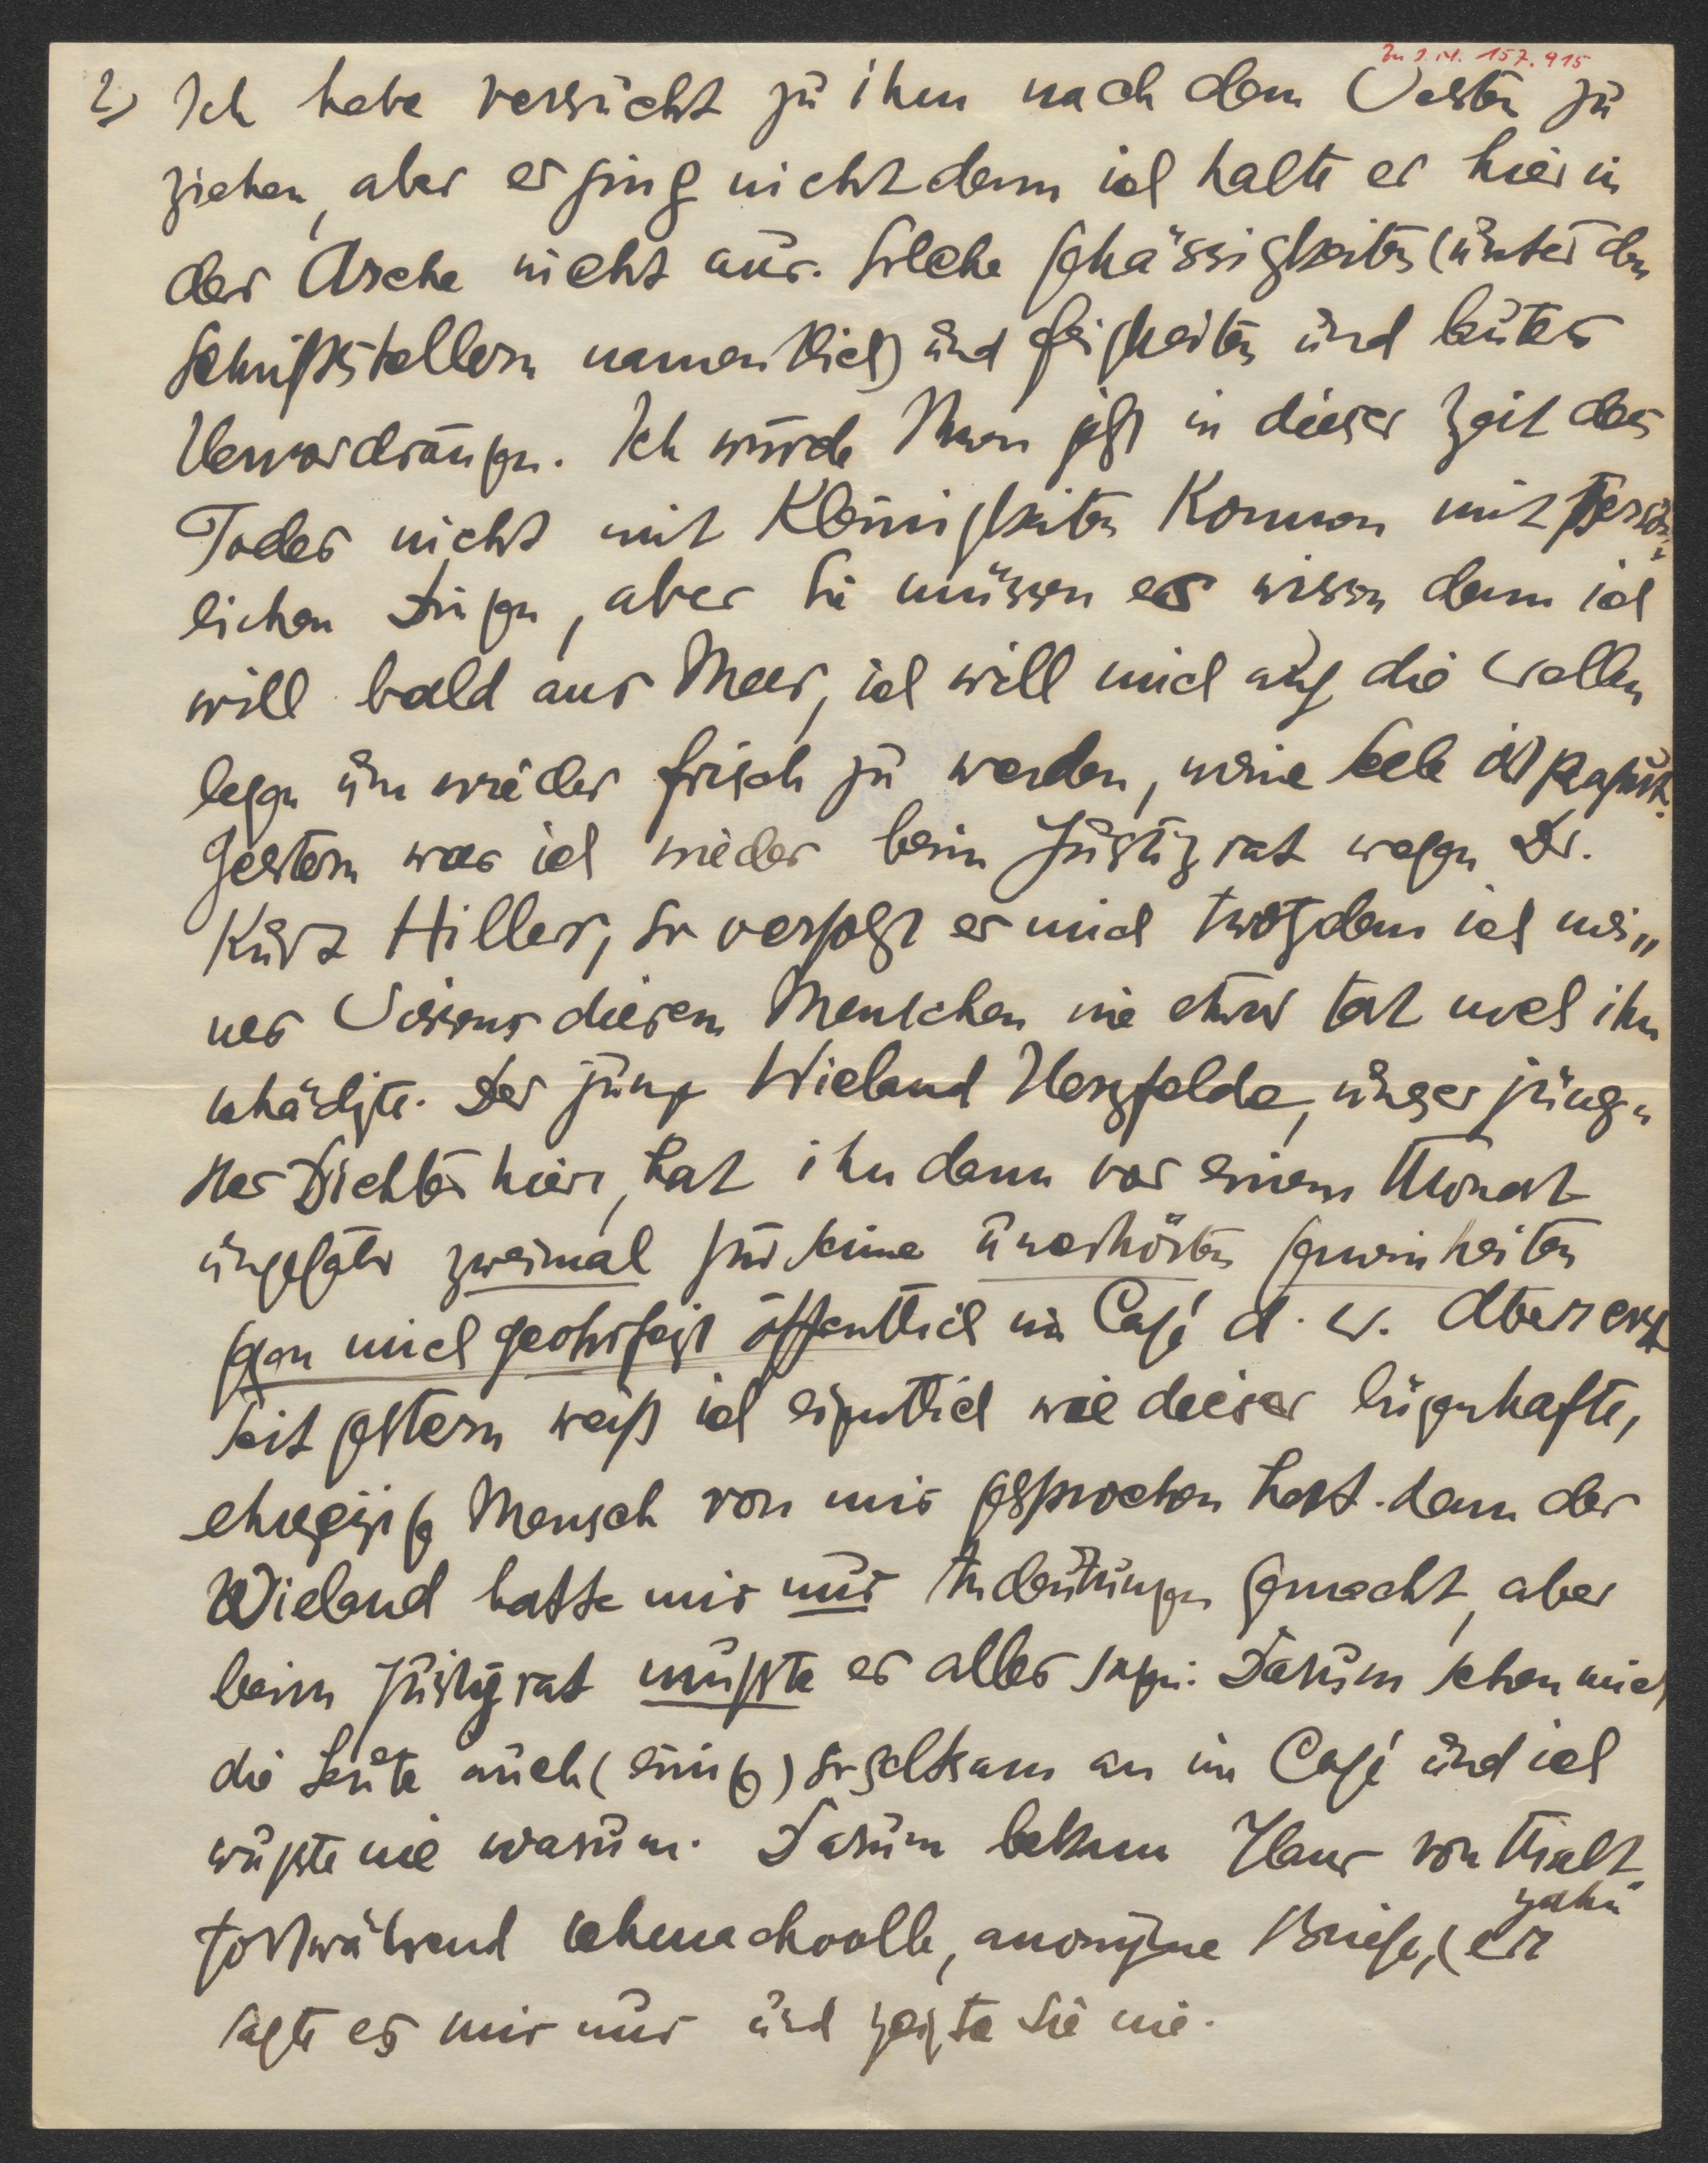 Zu I.N. 157.915
2) Ich habe versucht zu ihm nach dem Westen zu
ziehen, aber es ging nicht denn ich halte es hier in
der Asche nicht aus. Solche Gehässigkeiten (unter den
Schriftstellern namentlich) und Feigheiten und lauter
Hervordrängen. Ich würde Ihnen jetzt in dieser Zeit des
Todes nicht mit Kleinigkeiten kommen mit persön„
lichen Dingen, aber Sie müssen es wissen denn ich
will bald ans Meer, ich will mich auf die Wellen
legen um wieder frisch zu werden, meine Seele ist kaputt.
Gestern war ich wieder beim Justizrat wegen Dr.
Kurt Hiller, so verfolgt er mich trotzdem ich mei„
nes Wissens diesem Menschen nie etwas tat noch ihn
schädigte. Der junge Wieland Herzfelde, unser jüng„
ster Dichter hier, hat ihn dann vor einem Monat
ungefähr zweimal für seine unerhörten Gemeinheiten
gegen mich geohrfeigt öffentlich im Café d. W. Aber erst
seit gestern weiß ich eigentlich wie dieser lügenhafte,
ehrgeizige Mensch von mir gesprochen hat. denn der
Wieland hatte mir nur Andeutungen gemacht, aber
beim Justizrat mußte er alles sagen. Darum sehen mich
die Leute auch (einige) so seltsam an im Café und ich
wußte nie warum. Darum bekam Hans von Malt
zahn
fortwährend schmachvolle, anonyme Briefe, (er
sagte es mir nur und zeigte sie nie.